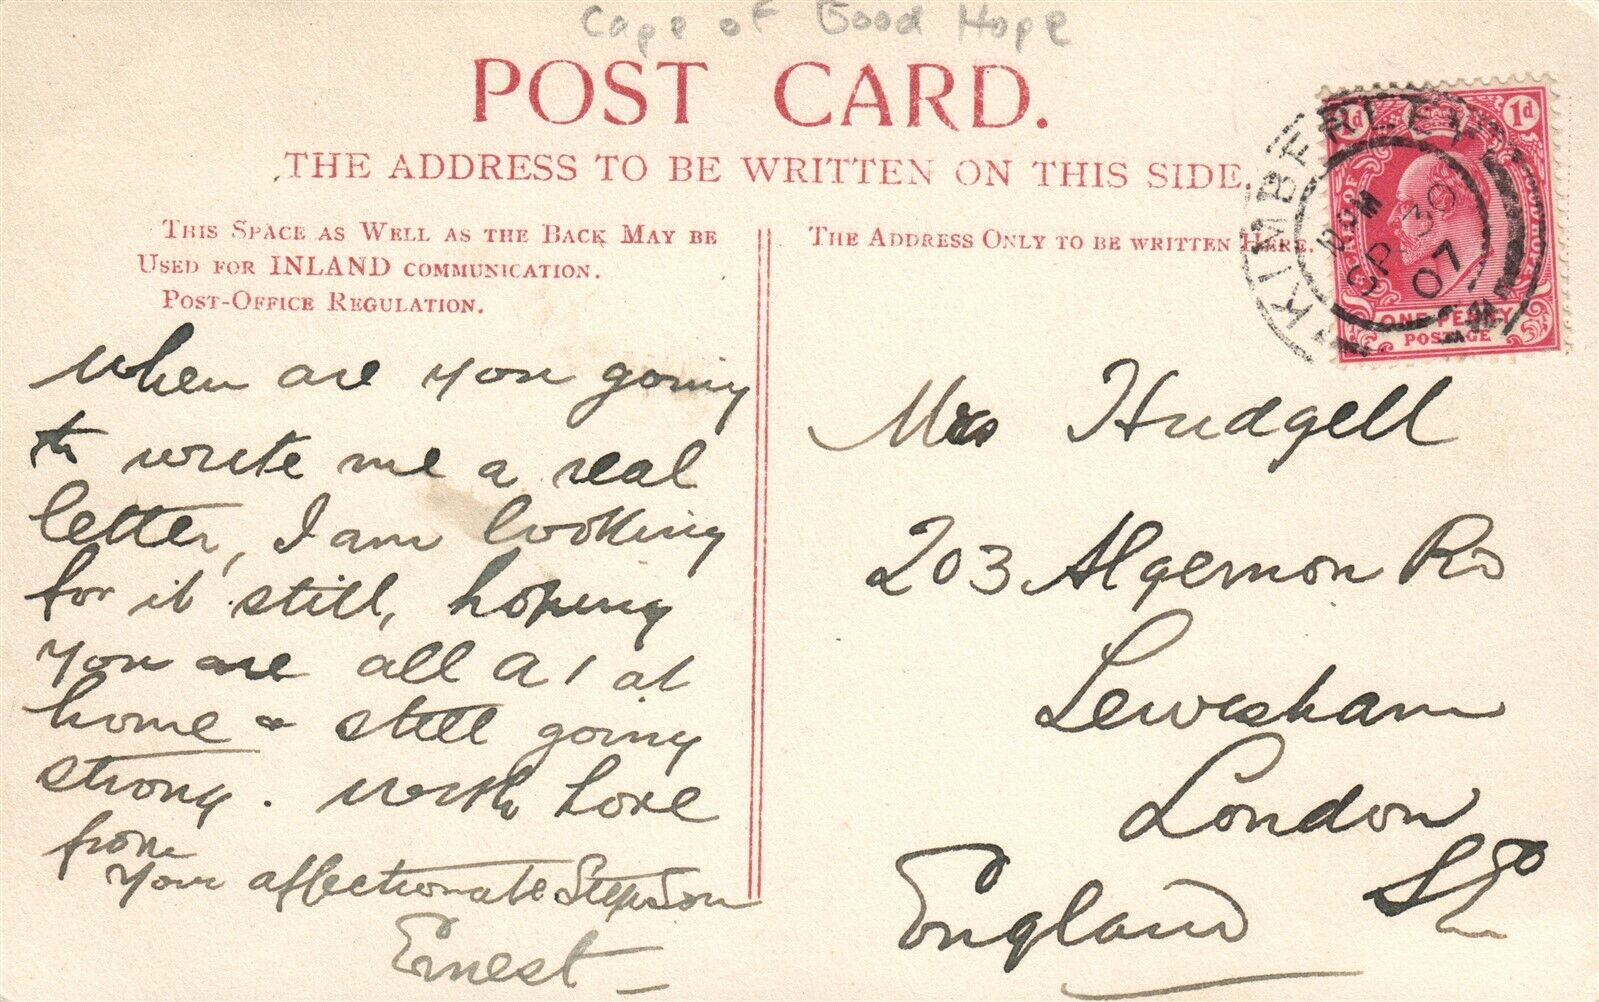 Cape of Good Hope
POST CARD.
THE ADDRESS TO BE WRITTEN ON THIS SIDE.
THIS SPACE AS WELL AS THE BACK MAY BE
USED FOR INLAND COMMUNICATION.
POST-OFFICE REGULATION.
when are you going
to write me a real
letter, I am looking
for it still, hoping
you are all A1 at
home & still going
strong. with love
from
your affectionate StepSon
Ernest
THE ADDRESS ONLY TO BE WRITTEN HERE.
KIMBERLEY
PM
SP 30
07
1d
ONE PENNY
POSTAGE
Mrs Hudgell
203 Algernon Rd
Lewisham
London
SE
England